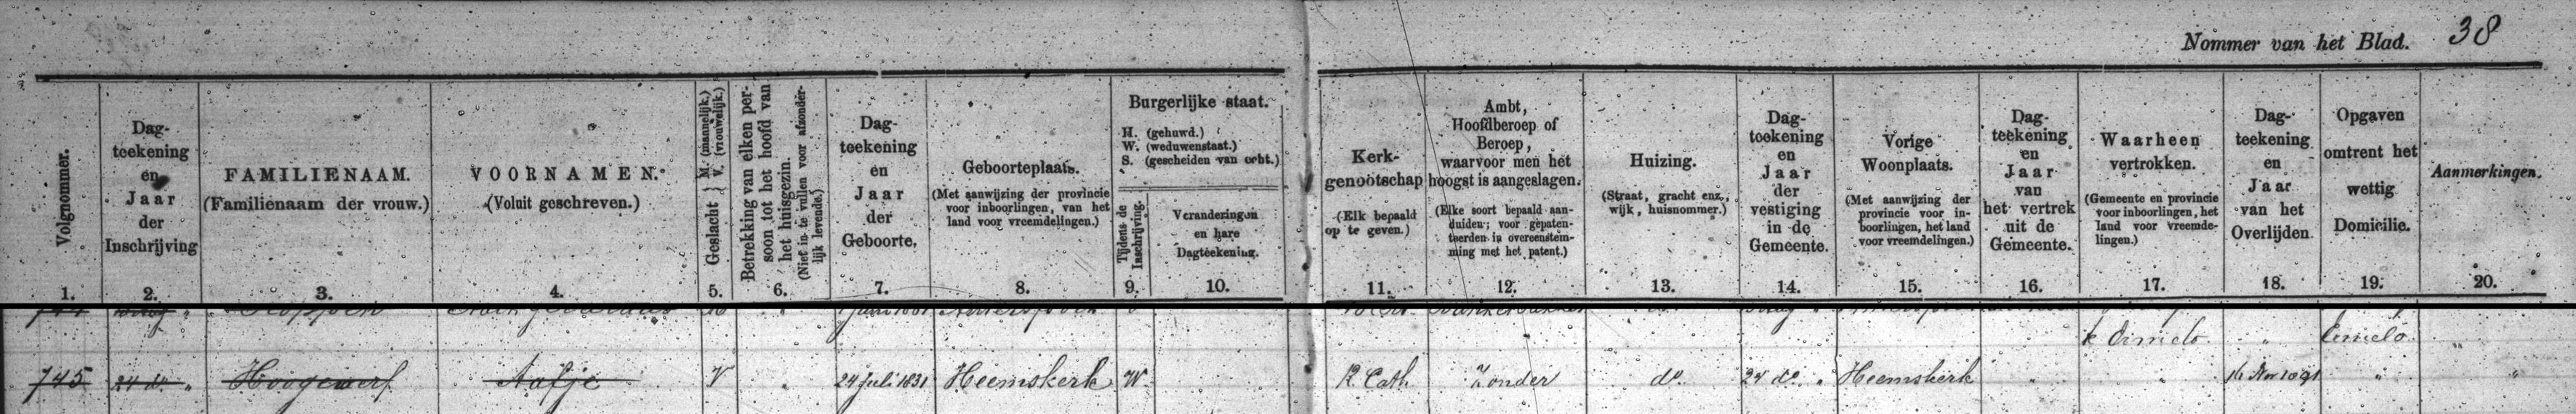 Nommer van het Blad. 38
Volgnommer.
Dag-
teekening
en
Jaar
der
Inschrijving
FAMILIENAAM.
(Familienaam der vrouw.)
VOORNAMEN.
(Voluit geschreven.)
Geslacht { M. (mannelijk.)
V. (vrouwelijk.)
Betrekking van elken per-
soon tot het hoofd van
het huisgezin.
(Niet in te vullen voor afzonder-
lijk levende.)
Dag-
teekening
en
Jaar
der
Geboorte.
Geboorteplaats.
(Met aanwijzing der provincie
voor inboorlingen, van het
land voor vreemdelingen.)
Burgerlijke staat.
H. (gehuwd.)
W. (weduwenstaat.)
S. (gescheiden van echt.)
Tijdens de
Inschrijving.
Veranderingen
en hare
Dagteekening.
Kerk-
genootschap
(Elk bepaald
op te geven.)
Ambt,
Hoofdberoep of
Beroep,
waarvoor men het
hoogst is aangeslagen.
(Elke soort bepaald aan-
duiden; voor gepaten-
teerden in overeenstem-
ming met het patent.)
Huizing.
(Straat, gracht enz.,
wijk, huisnommer.)
Dag-
teekening
en
Jaar
der
vestiging
in de
Gemeente.
Vorige
Woonplaats.
(Met aanwijzing der
provincie voor in-
boorlingen, het land
voor vreemdelingen.)
Dag-
teekening
en
Jaar
van
het vertrek
uit de
Gemeente.
Waarheen
vertrokken.
(Gemeente en provincie
voor inboorlingen, het
land voor vreemde-
lingen.)
Dag-
teekening
en
Jaar
van het
Overlijden
Opgaven
omtrent het
wettig
Domicilie.
Aanmerkingen.
1. 2. 3. 4. 5. 6. 7. 8. 9. 10. 11. 12. 13. 14. 15. 16. 17. 18. 19. 20.
745 24 do " Hoogewerf Aafje V " 24 Juli 1831 Heemskerk W R. Cath Zonder do. 24 do. " Heemskerk " " 16 Nov 1891 " "